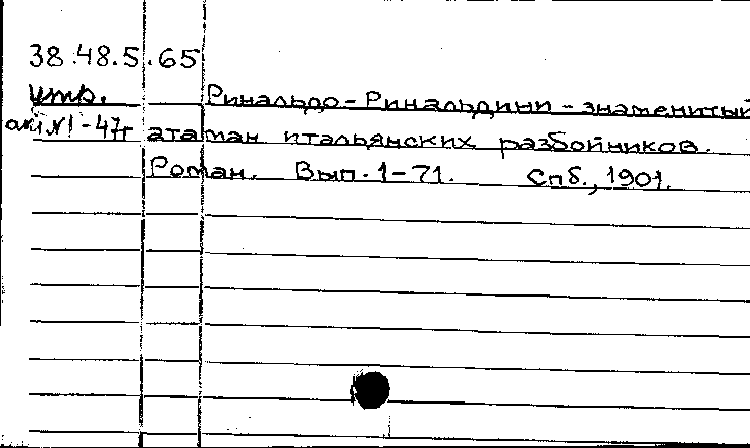 38.48.5.65
утр.
Ринальдо-Ринальдини - знаменитый
акт №1-47г атаман итальянских разбойников.
Роман. Вып. 1-71. Спб., 1901.